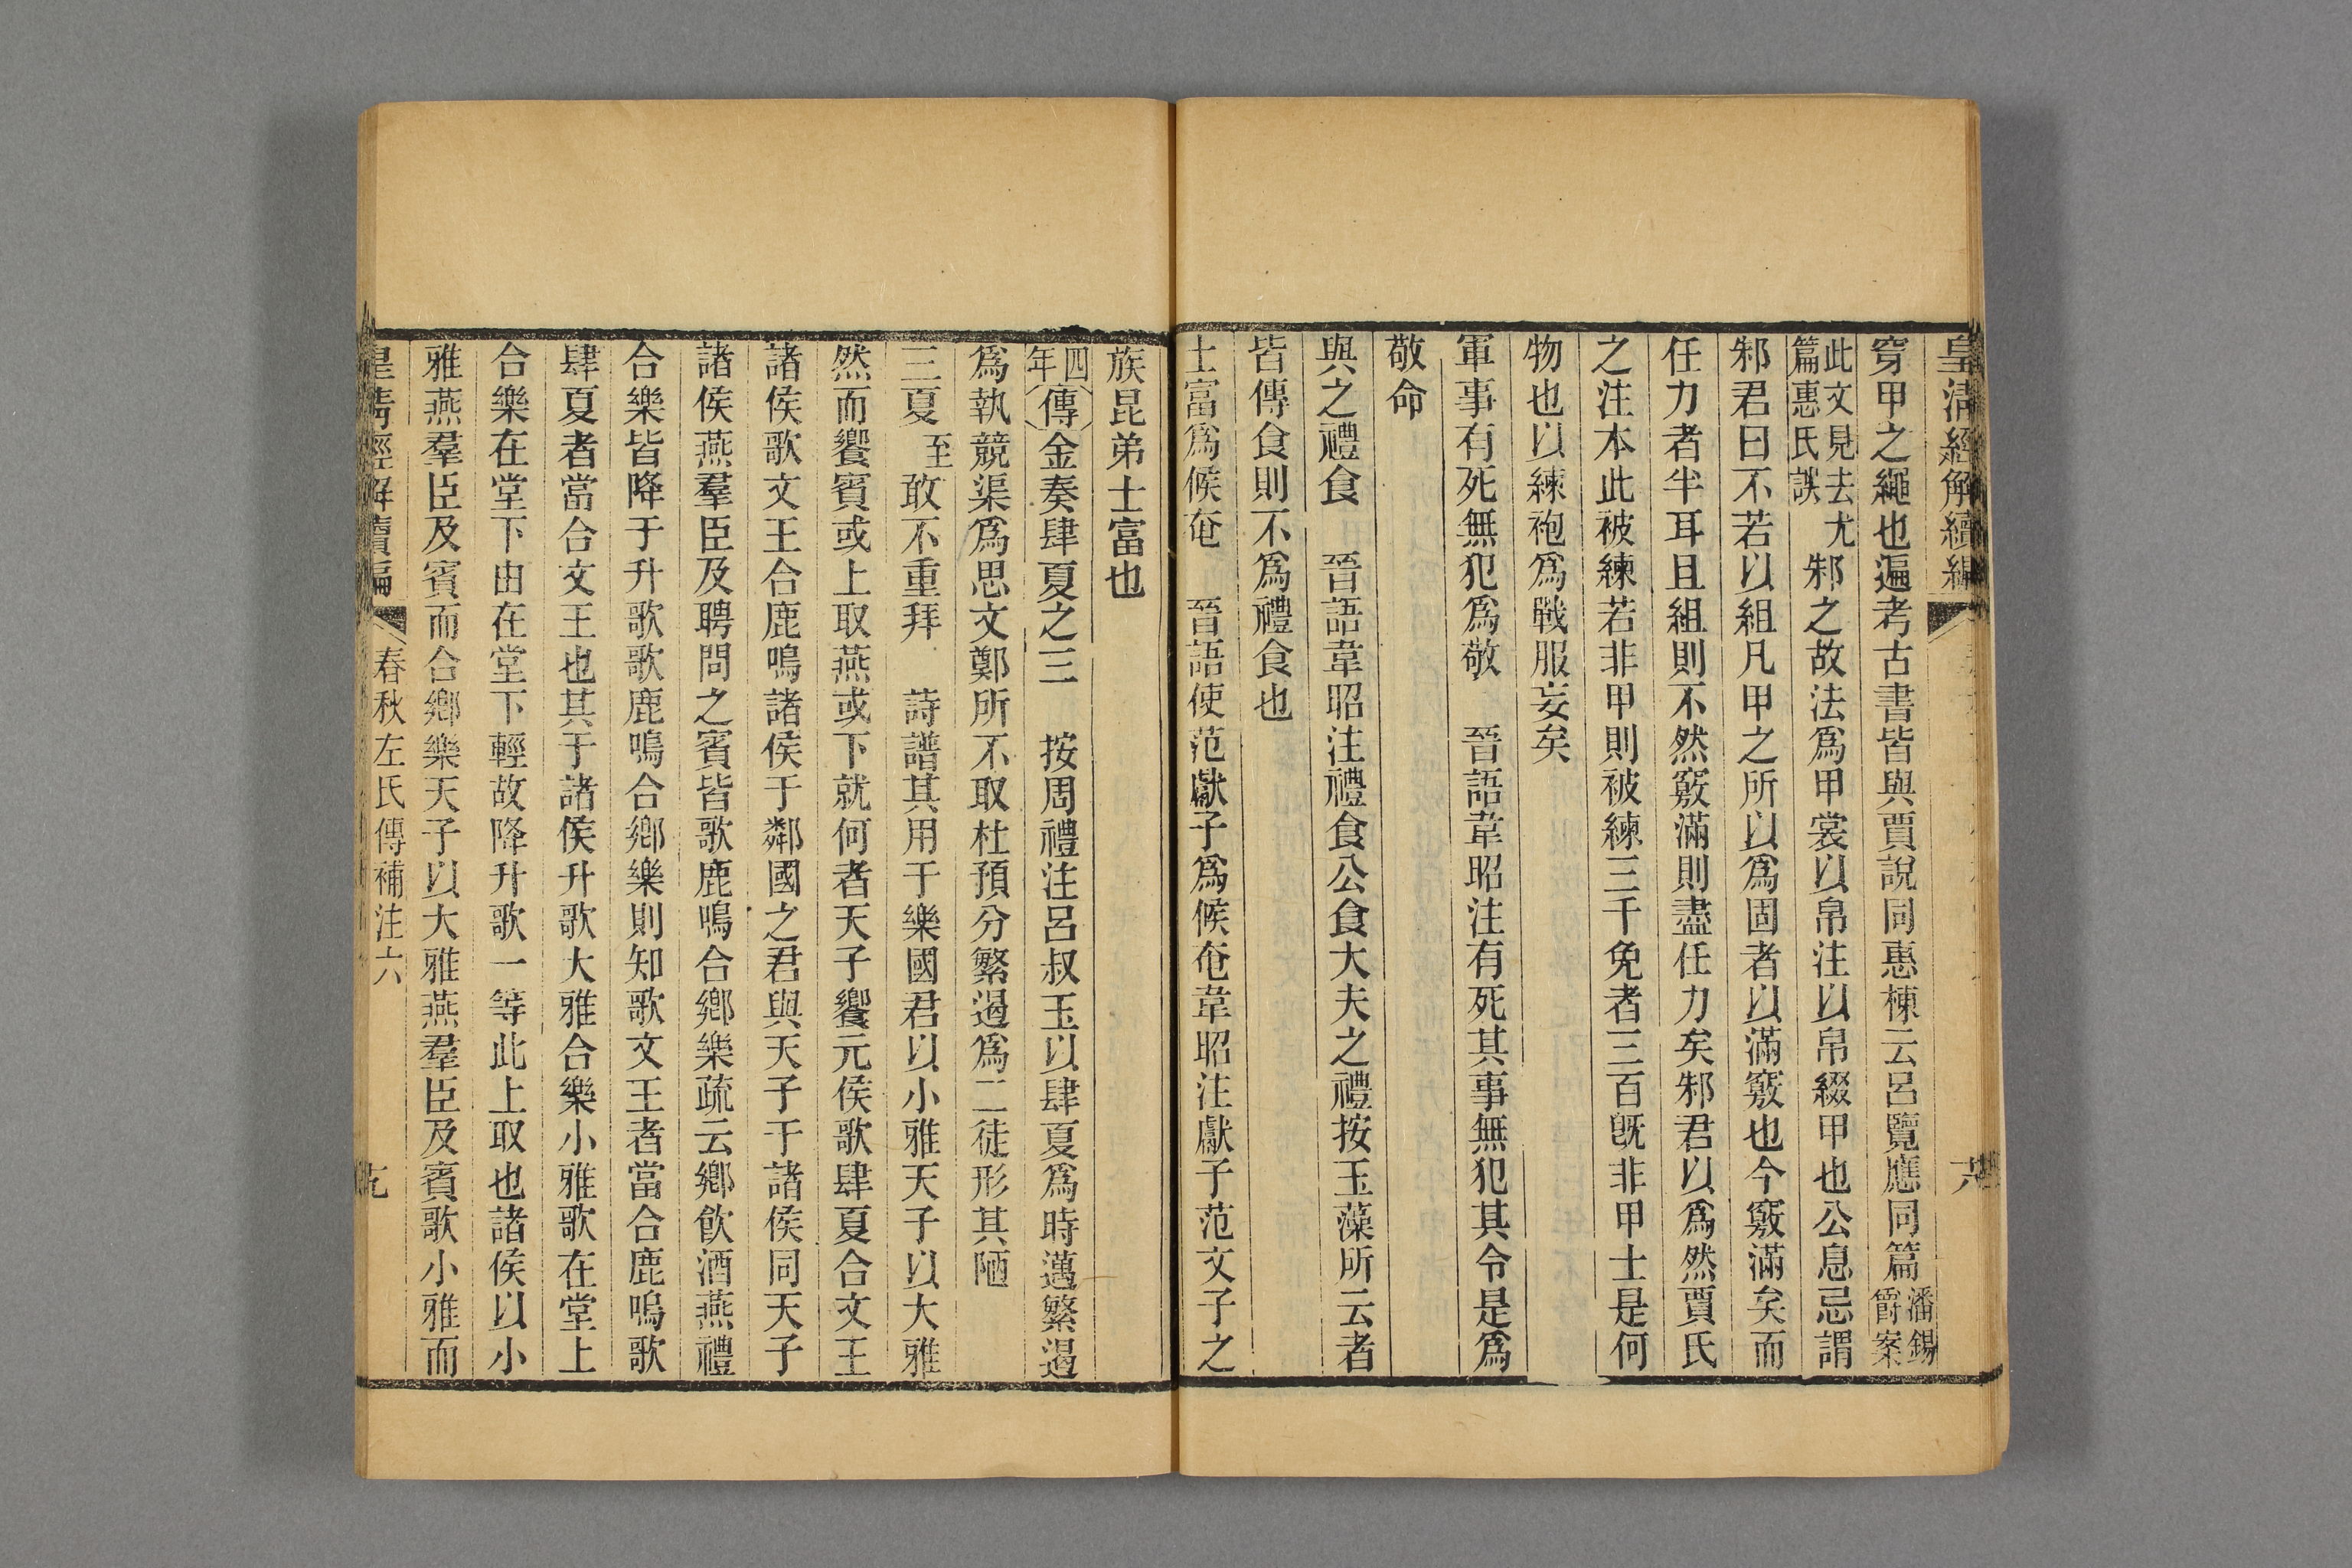 皇清經解續編
穿甲之繩也遍考古書皆與賈說同惠棟云呂覽應同篇潘錫爵案
此文見去尤篇惠氏誤邾之故法爲甲裳以帛注以帛綴甲也公息忌謂
邾君曰不若以組凡甲之所以爲固者以滿竅也今竅滿矣而
任力者半耳且組則不然竅滿則盡任力矣邾君以爲然賈氏
之注本此被練若非甲則被練三千免者三百旣非甲士是何
物也以練袍爲戰服妄矣
軍事有死無犯爲敬　晉語韋昭注有死其事無犯其令是爲
敬命
與之禮食　晉語韋昭注禮食公食大夫之禮按玉藻所云者
皆傳食則不爲禮食也
士富爲候奄　晉語使范獻子爲候奄韋昭注獻子范文子之
族昆弟士富也
四年傳金奏肆夏之三　按周禮注呂叔玉以肆夏爲時邁繁遏
爲執競渠爲思文鄭所不取杜預分繁遏爲二徒形其陋
三夏至敢不重拜　詩譜其用于樂國君以小雅天子以大雅
然而饗賓或上取燕或下就何者天子饗元侯歌肆夏合文王
諸侯歌文王合鹿鳴諸侯于鄰國之君與天子于諸侯同天子
諸侯燕羣臣及聘問之賓皆歌鹿鳴合鄉樂疏云鄉飲酒燕禮
合樂皆降于升歌歌鹿鳴合鄉樂則知歌文王者當合鹿鳴歌
肆夏者當合文王也其于諸侯升歌大雅合樂小雅歌在堂上
合樂在堂下由在堂下輕故降升歌一等此上取也諸侯以小
雅燕羣臣及賓而合鄉樂天子以大雅燕羣臣及賓歌小雅而
皇清經解續編　春秋左氏傳補注六